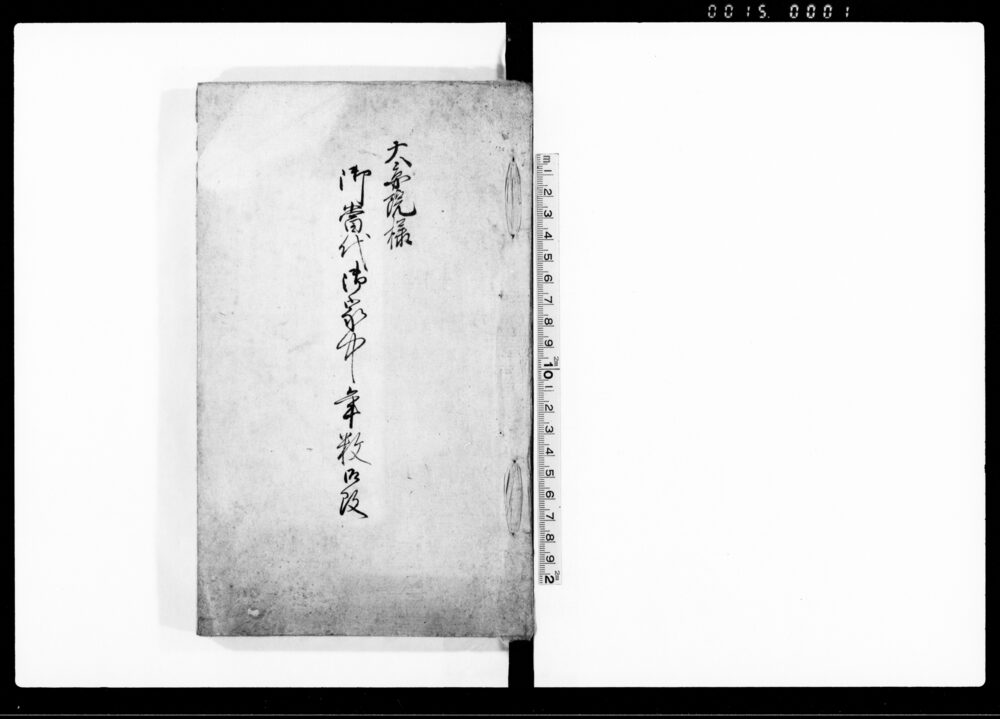 大院様
御當代御家中年数御改
0015 0001
m 1 2 3 4 5 6 7 8 9 10 1 2 3 4 5 6 7 8 9 2